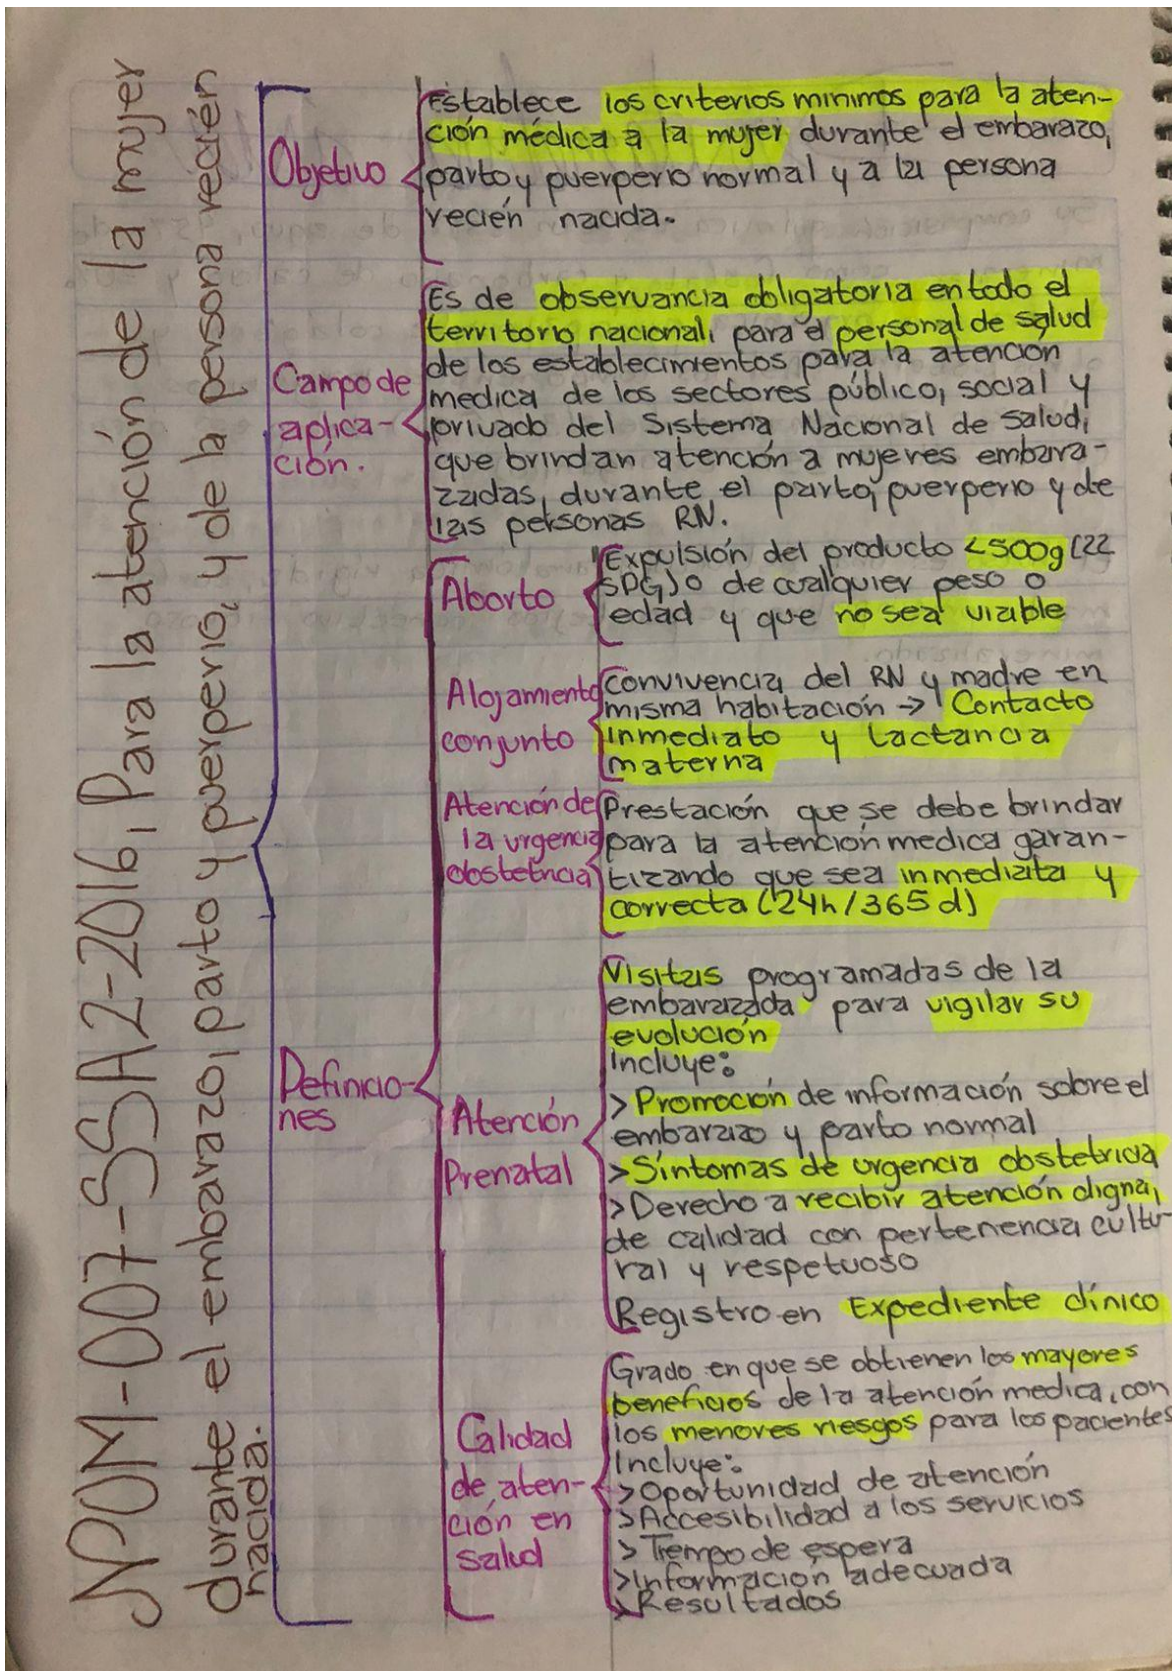 NOM-007-SSA2-2016, Para la atención de la mujer
durante el embarazo, parto y puerperio, y de la persona recién
nacida.
Objetivo
Establece los criterios minimos para la aten-
ción médica a la mujer durante el embarazo,
parto y puerperio normal y a la persona
recién nacida.
Campo de
aplica-
ción.
Es de observancia obligatoria en todo el
territorio nacional, para el personal de salud
de los establecimientos para la atención
medica de los sectores público, social y
privado del Sistema Nacional de Salud,
que brindan atención a mujeres embara-
zadas, durante el parto, puerperio y de
las personas RN.
Definicio-
nes
Aborto
Expulsión del producto <500g (22
SPG) o de cualquier peso o
edad y que no sea viable
Alojamiento
conjunto
Convivencia del RN y madre en
misma habitación → Contacto
inmediato y Lactancia
materna
Atención de
la urgencia
obstetricia
Prestación que se debe brindar
para la atención medica garan-
tizando que sea inmediata y
correcta (24h/365 d)
Atención
Prenatal
Visitas programadas de la
embarazada para vigilar su
evolución
Incluye:
> Promoción de información sobre el
embarazo y parto normal
> Síntomas de urgencia obstetricia
> Derecho a recibir atención digna,
de calidad con pertenencia cultu-
ral y respetuoso
Registro en Expediente clínico
Calidad
de aten-
ción en
salud
Grado en que se obtienen los mayores
beneficios de la atención medica, con
los menores riesgos para los pacientes
Incluye:
> Oportunidad de atención
> Accesibilidad a los servicios
> Tiempo de espera
> Información adecuada
> Resultados